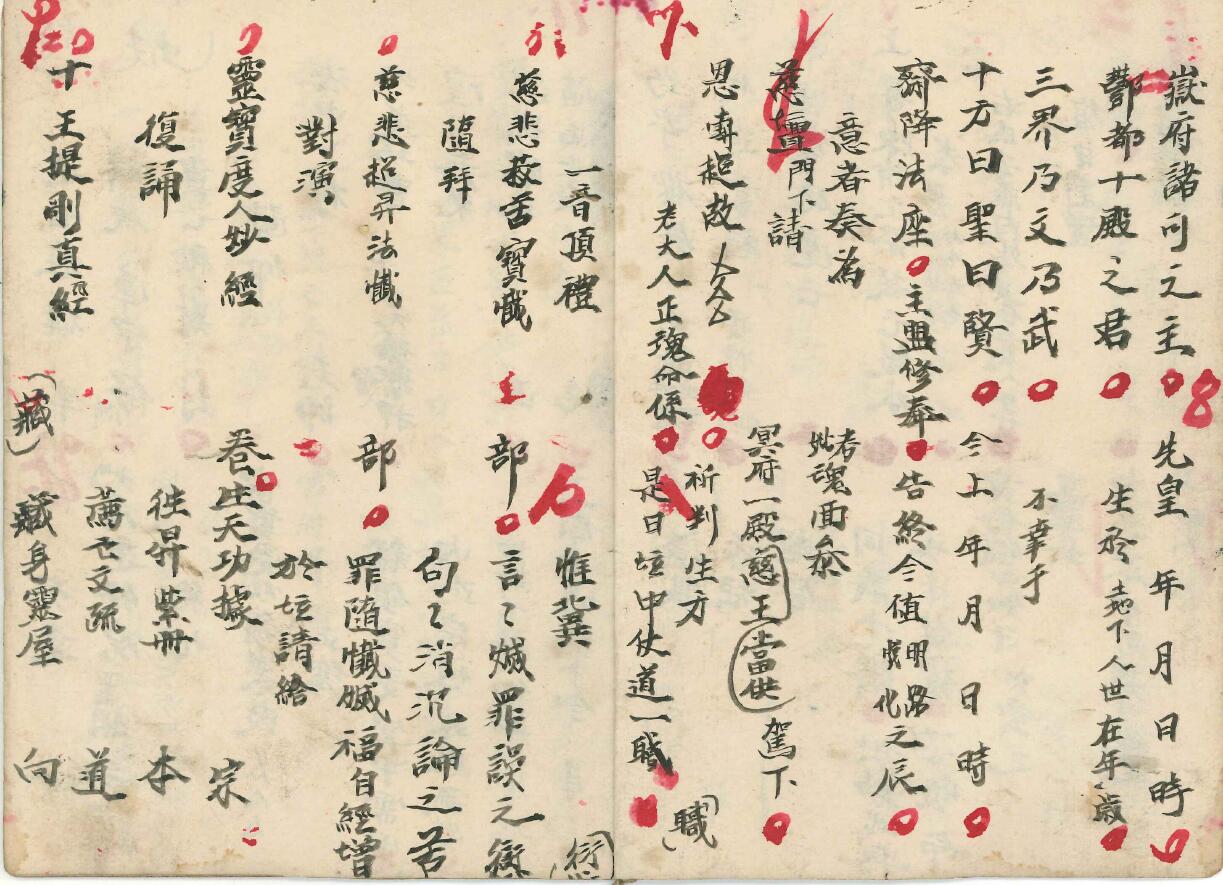 嶽府諸司之主 先皇 年 月 日 時
酆都十殿之君 生於 地下人世在年 歲
三界乃文乃武 不幸于
十方曰聖曰賢 今上 年 月 日 時
齋降法座 主盟修奉 告終今值 明路 化之辰
意者奏為 者 魂面叅
慈壇門下請 冥府一殿慈王當供 駕下
恩專起故 祈判生方
老大人正魂命係 是日坛中伏道一職 (職)
一音頂禮 惟冀 (衍)
慈悲救苦寶懺 部 言〻滅罪誤之衍
隨拜 句〻消沉論之苦
慈悲超昇法懺 部 罪隨懺滅福自經增
對演 於坛請給
靈寶度人妙經 卷 生天功據 宗
復誦 徃昇紫冊 本
十王提剛真經 薦亡文疏 道
(藏) 藏身靈屋 向